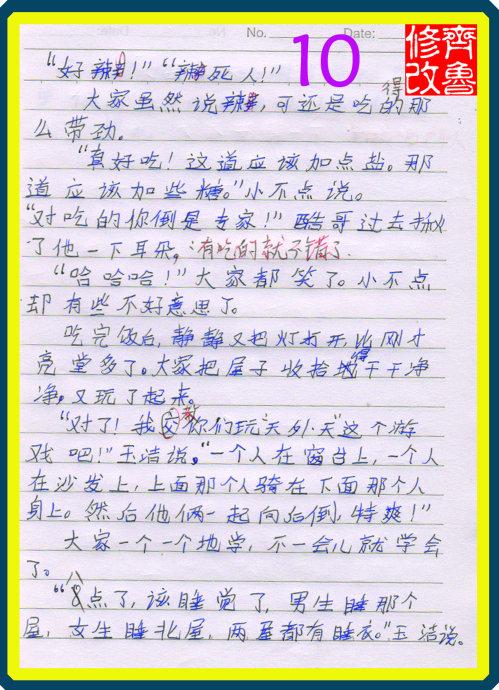 No.
10
修改齊魯
“好辣!”“辣死人!”
得
大家虽然说辣,可还是吃的那
么带劲。
“真好吃!这道应该加点盐。那
道应该加些糖。”小不点说。
“对吃的你倒是专家!”酷哥过去揪
了他一下耳朵,有吃的就不错了.
“哈哈哈!”大家都笑了。小不点
却有些不好意思了。
吃完饭后,静静又把灯打开,比刚才
亮堂多了。大家把屋子收拾地干干净
得
净,又玩了起来。
“对了!我交你们玩“天外天”这个游
教
戏吧!”玉洁说,“一个人在窗台上,一个人
在沙发上,上面那个人骑在下面那个人
身上。然后他俩一起向后倒,特爽!”
大家一个一个地学,不一会儿就学会
了。
八
“8点了,该睡觉了,男生睡那个
屋,女生睡北屋,两屋都有睡衣。”玉洁说。